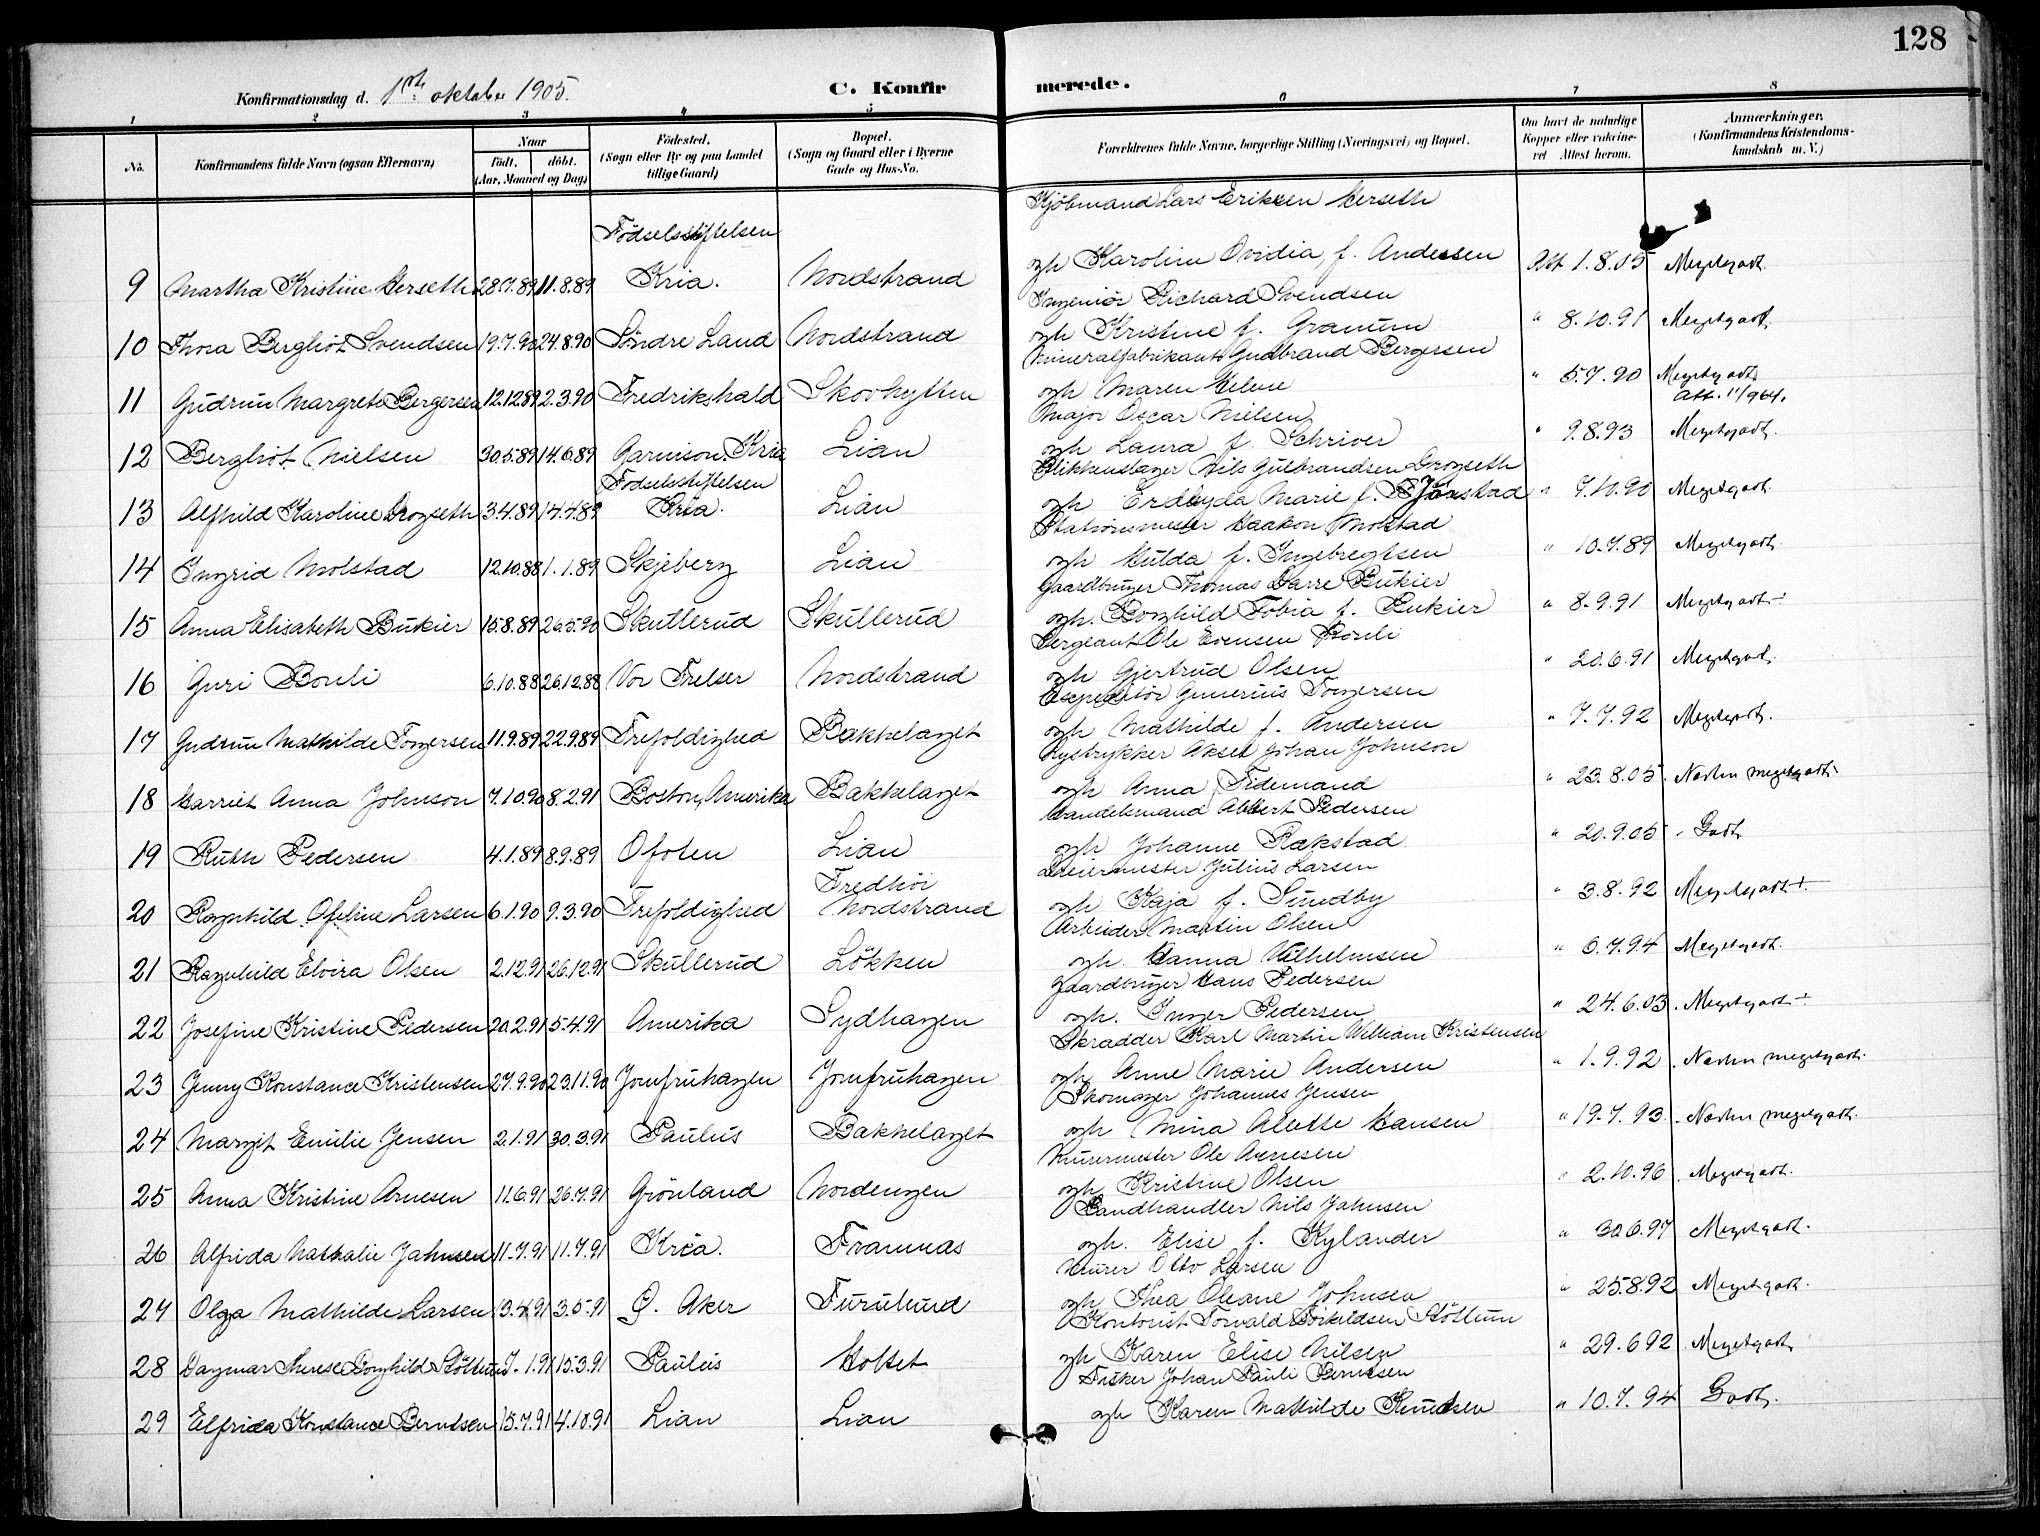 128
Konfirmationsdag d. 1ste oktober 1905. C. Konfirmerede.
1 2 3 4 5 6 7 8
No. Konfirmandens fulde Navn (ogsaa Efternavn) Naar født. døbt. (Aar, Maaned og Dag) Fødested. (Sogn eller By og paa Landet tillige Gaard) Bopæl. (Sogn og Gaard eller i Byerne Gade og Hus-No.) Forældrenes fulde Navne, borgerlige Stilling (Næringsvei) og Bopæl. Om havt de naturlige Kopper eller vaccineret Attest herom. Anmærkninger, (Konfirmandens Kristendomskundskab m. V.)
Kjöbmand Lars Eriksen Herseth
Födselsstiftelsen
9 Martha Kristine Herseth 28.7.89 11.8.89 Kria. Nordstrand ogh Karoline Ovidia, f. Andersen Att 1.8.05 Megetgodt.
Ingeniör Richard Svendsen
10 Thora Bergliot Svendsen 19.7.90 24.8.90 Söndre Land Nordstrand ogh Kristine f. Granum " 8.10.91 Megetgodt.
Mineralfabrikant Gudbrand Bergersen
11 Gudrun Margrete Bergersen 12.12.89 2.3.90 Fredrikshald Skovhytten ogh Maren Helene " 5.7.90 Megetgodt
Att. 11/964.
Major Oscar Nielsen
12 Bergliot Nielsen 30.5.89 14.6.89 Garnison, Kria Lian ogh Laura f. Schriver " 9.8.93 Megetgodt.
Födselsstiftelsen
Blikkenslager Nils Gulbrandsen Grogseth
13 Alfhild Karoline Grogseth 3.4.89 14.4.89 Kria. Lian ogh Marie f. " 7.10.90 Megetgodt.
Stationsmester Haakon Molstad
14 Ingrid Molstad 12.10.88 1.1.89 Skjeberg Lian ogh Hulda f. Ingebregtsen " 10.7.89 Megetgodt.
Gaardbruger Thomas Darre Bukier
15 Anna Elisabeth Bukier 15.8.89 26.5.90 Skullerud Skullerud ogh. Borghild Tobia f. Bukier " 8.9.91 Megetgodt÷
Sergeant Ole Evensen Bouli
16 Guri Bouli 6.10.88 26.12.88 Vor Frelser Nordstrand ogh Gjertrud Olsen " 20.6.91 Megetgodt.
Expeditör Gunerius Torgersen
17 Gudrun Mathilde Torgersen 11.9.89 22.9.89 Trefoldighed Bakkelaget ogh Mathilde f. Andersen " 7.7.92 Megetgodt.
Lystrykker Aksel Johan Johnson
18 Harriet Anna Johnson 7.10.90 8.2.91 Boston, Amerika Bakkelaget ogh Anna Tidemand " 23.8.05 Næsten megetgodt.
Handelsmand Albert Pedersen
19 Ruth Pedersen 4.1.89 8.9.89 Ofoten Lian ogh Johanne Rakstad " 20.9.05 Godt
Dreiermester Julius Larsen
Fredhöi
20 Ragnhild Ofeline Larsen 6.1.90 9.3.90 Trefoldighed Nordstrand ogh Kaja f. Sundby " 3.8.92 Megetgodt+
Arbeider Martin Olsen
21 Ragnhild Elvira Olsen 2.12.91 26.12.91 Skullerud Lökken ogh. Hanna Vilhelmsen " 6.7.94 Megetgodt.
Gaardbruger Hans Pedersen
22 Josefine Kristine Pedersen 20.2.91 5.4.91 Amerika Sydhagen ogh. Inger Pedersen " 24.6.03 Megetgodt÷
Skrædder Karl Martin William Kristensen
23 Jenny Konstance Kristensen 27.9.90 23.11.90 Jomfruhagen Jomfruhagen ogh Anne Marie Andersen " 1.9.92 Næsten megetgodt.
Skomager Johannes Jensen
24 Margit Emilie Jensen 2.1.91 30.3.91 Paulus Bakkelaget ogh Mina Alette Hansen " 19.7.93 Næsten megetgodt.
Murermester Ole Arnesen
25 Anna Kristine Arnesen 11.6.91 26.7.91 Grönland Nordengen ogh Kristine Olsen " 2.10.96 Megetgodt.
Landhandler Nils Jahnsen
26 Alfrida Nathalie Jahnsen 11.7.91 11.7.91 Kria. Framnæs ogh. Elise f. Kylander " 30.6.97 Megetgodt.
Murer Otto Larsen
27 Olga Mathilde Larsen 13.4.91 3.5.91 Ö. Aker Furulund ogh Thea Oleane Johnsen " 25.8.92 Megetgodt.
Kontorist Torvald Stöttum
28 Dagmar Therese Borghild Stöttum 7.1.91 15.3.91 Paulus Holtet ogh Karen Elise Nilsen " 29.6.92 Megetgodt.
Fisker Johan Pauli Berntsen
29 Elfrida Konstance Berntsen 15.7.91 4.10.91 Lian Lian ogh Karen Mathilde Knudsen " 10.7.94 Godt.